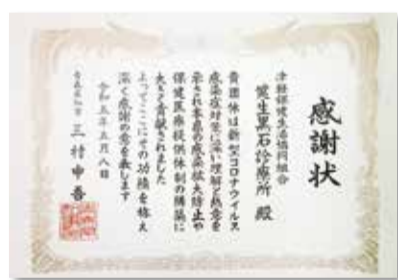 感謝状
津軽保健生活協同組合
健生黒石診療所 殿
貴団体は新型コロナウイルス
感染症対策に深い理解と熱意を
示され本県の感染拡大防止や
保健医療提供体制の構築に
大きく貢献されました
よってここにその功績を称え
深く感謝の意を表します
令和五年五月八日
青森県知事 三村申吾